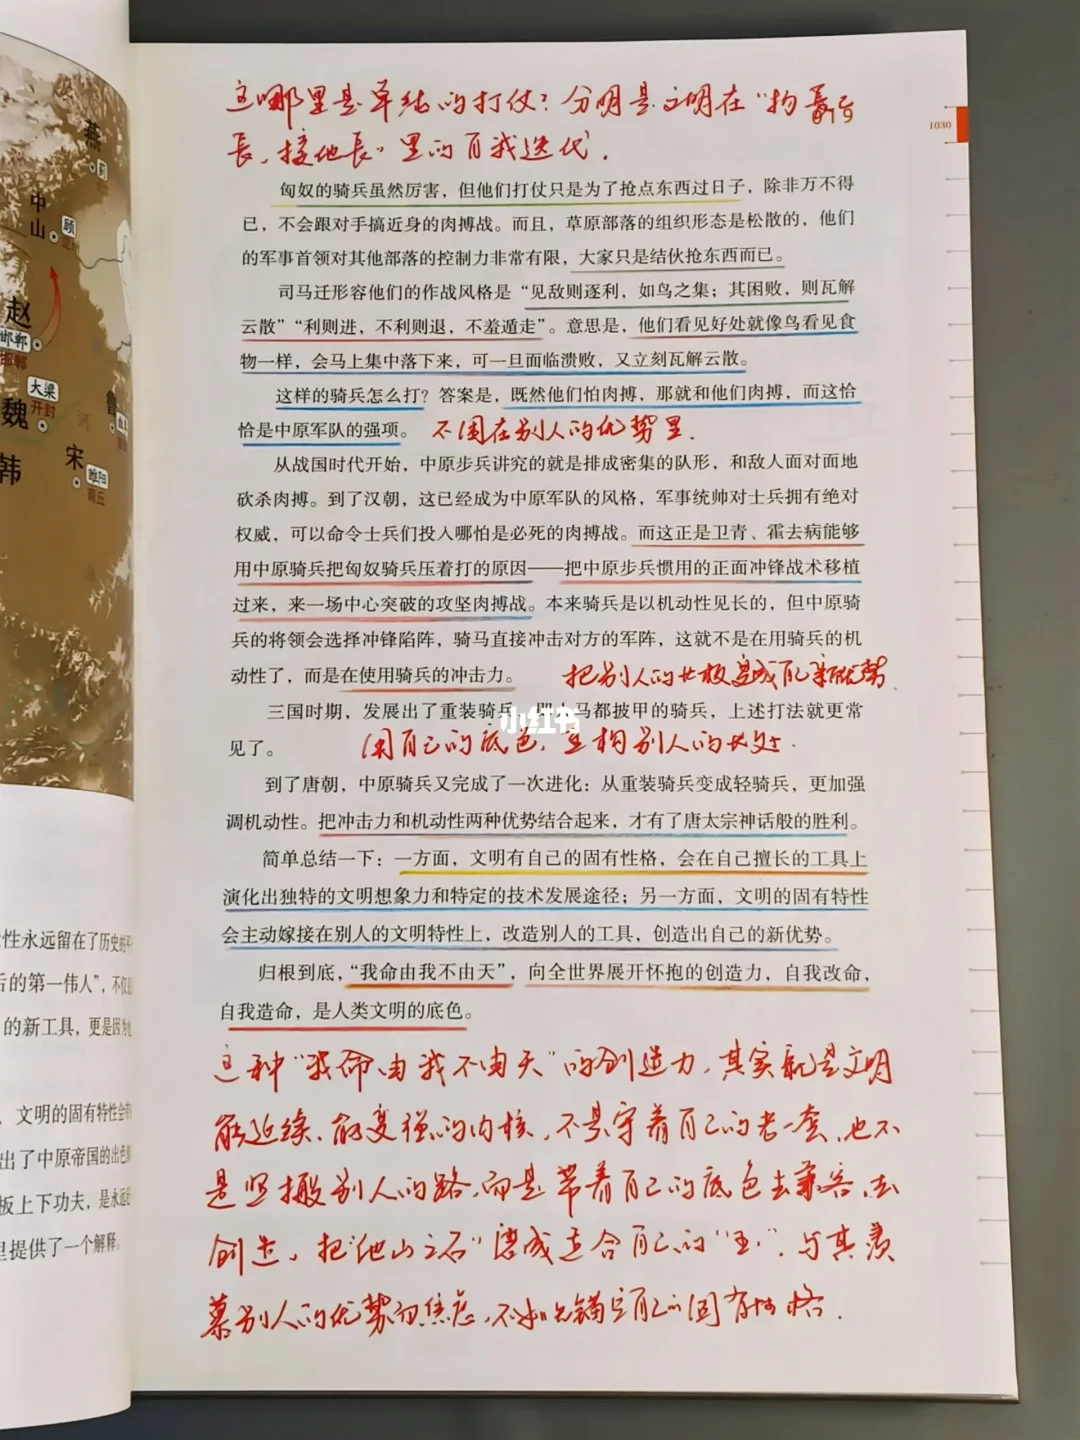 燕
蓟
中
山
顾
赵
邯郸
邯郸
大梁
开封
魏
鲁
宋
睢阳
商丘
韩
性永远留在了历史的
后的第一伟人”，不仅
的新工具，更是因为
，文明的固有特性会
出了中原帝国的出色
板上下功夫，是永远
里提供了一个解释。
1030
这哪里是单纯的打仗？分明是文明在“拘
长，接地长”里的自我迭代．
匈奴的骑兵虽然厉害，但他们打仗只是为了抢点东西过日子，除非万不得
已，不会跟对手搞近身的肉搏战。而且，草原部落的组织形态是松散的，他们
的军事首领对其他部落的控制力非常有限，大家只是结伙抢东西而已。
司马迁形容他们的作战风格是“见敌则逐利，如鸟之集；其困败，则瓦解
云散”“利则进，不利则退，不羞遁走”。意思是，他们看见好处就像鸟看见食
物一样，会马上集中落下来，可一旦面临溃败，又立刻瓦解云散。
这样的骑兵怎么打？答案是，既然他们怕肉搏，那就和他们肉搏，而这恰
恰是中原军队的强项。 不困在别人的优势里．
从战国时代开始，中原步兵讲究的就是排成密集的队形，和敌人面对面地
砍杀肉搏。到了汉朝，这已经成为中原军队的风格，军事统帅对士兵拥有绝对
权威，可以命令士兵们投入哪怕是必死的肉搏战。而这正是卫青、霍去病能够
用中原骑兵把匈奴骑兵压着打的原因——把中原步兵惯用的正面冲锋战术移植
过来，来一场中心突破的攻坚肉搏战。本来骑兵是以机动性见长的，但中原骑
兵的将领会选择冲锋陷阵，骑马直接冲击对方的军阵，这就不是在用骑兵的机
动性了，而是在使用骑兵的冲击力。 把别人的长板变成自己新优势．
三国时期，发展出了重装骑兵，即人马都披甲的骑兵，上述打法就更常
小红书
见了。 用自己的底色，重构别人的长处．
到了唐朝，中原骑兵又完成了一次进化：从重装骑兵变成轻骑兵，更加强
调机动性。把冲击力和机动性两种优势结合起来，才有了唐太宗神话般的胜利。
简单总结一下：一方面，文明有自己的固有性格，会在自己擅长的工具上
演化出独特的文明想象力和特定的技术发展途径；另一方面，文明的固有特性
会主动嫁接在别人的文明特性上，改造别人的工具，创造出自己的新优势。
归根到底，“我命由我不由天”，向全世界展开怀抱的创造力，自我改命，
自我造命，是人类文明的底色。
这种“我命由我不由天”的创造力，其实就是文明
能延续、能变强的内核，不是守着自己的老一套，也不
是照搬别人的路，而是带着自己的底色去兼容、去
创造，把“他山之石”磨成适合自己的“玉”．与其羡
慕别人的优势和焦虑，不如先锚定自己的固有性格．